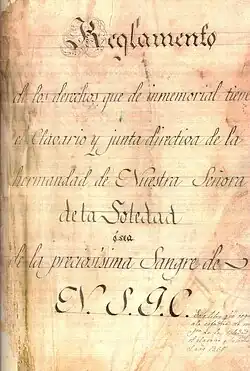 Reglamento
de los derechos que de inmemorial tiene
el Clavario y junta directiva de la
hermandad de Nuestra Señora
de la Soledad
ósea
de la preciosisima Sangre de
N. S. J. C.
Este libro